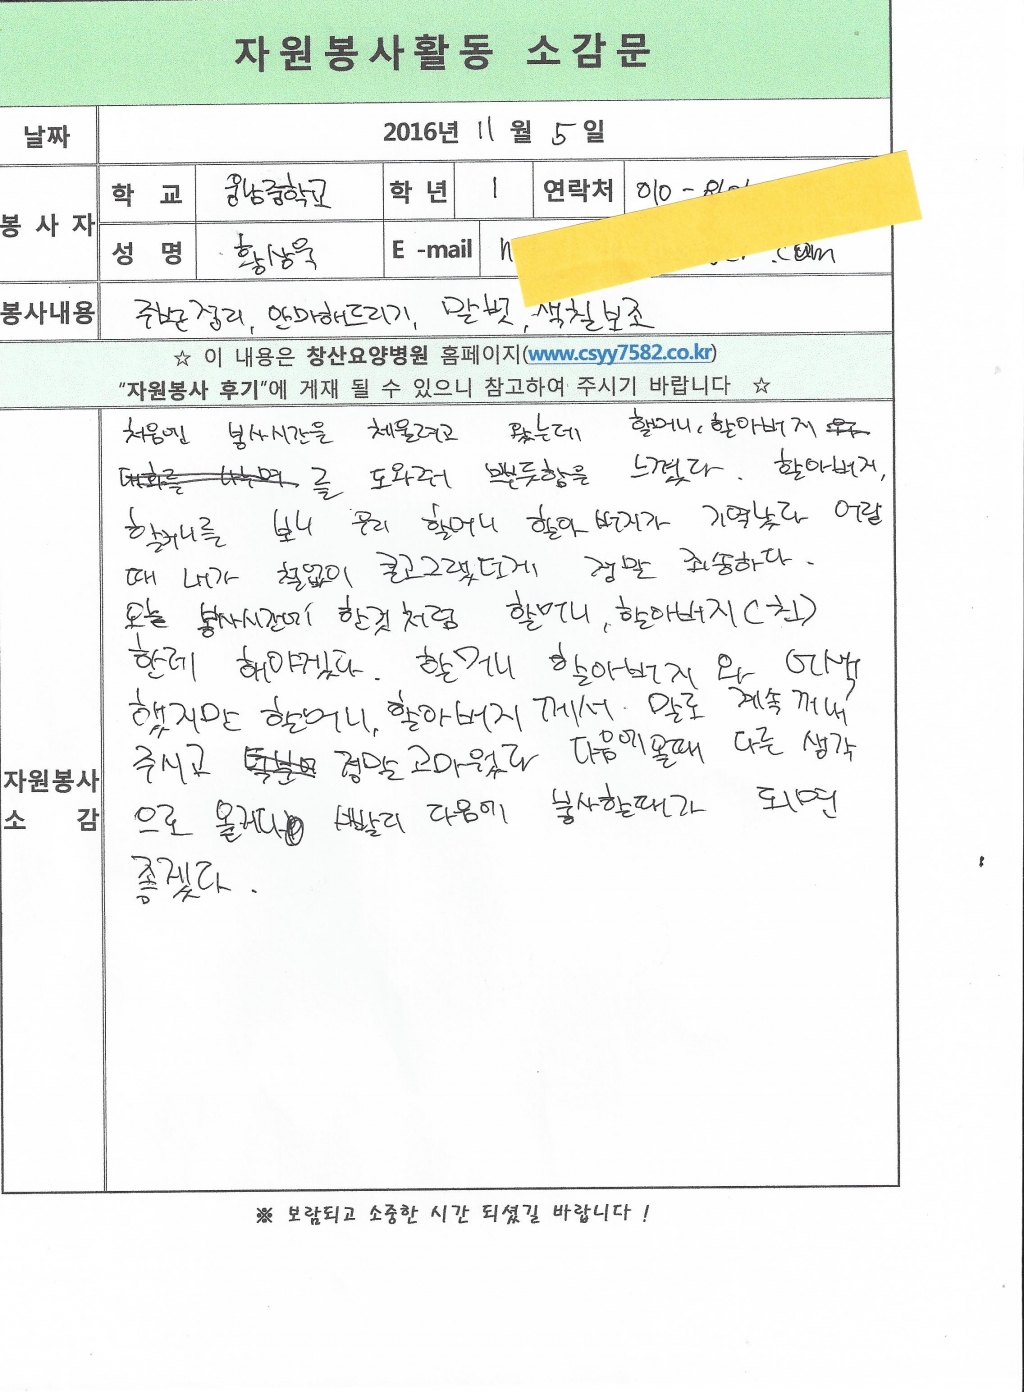 자원봉사활동 소감문
날짜 2016년 11월 5일
봉사자 학교 웅남중학교 학년 1 연락처 010 -
성명 황상욱 E-mail .com
봉사내용 주변정리, 안마해드리기, 말벗, 색칠보조
☆ 이 내용은 창산요양병원 홈페이지(www.csyy7582.co.kr)
"자원봉사 후기"에 게재 될 수 있으니 참고하여 주시기 바랍니다 ☆
자원봉사 소감
처음엔 봉사시간을 체울려고 왔는데 할머니, 할아버지
를 도와줘 뿌듯함을 느꼈다. 할아버지,
할머니를 보니 우리 할머니 할아버지가 기억났다 어릴
때 내가 철없이 굴고그랬던게 정말 죄송하다.
오늘 봉사시간에 한것처럼 할머니, 할아버지(친)
한테 해야겠다. 할머니 할아버지와 어색
했지만 할머니, 할아버지께서 말로 계속 꺼내
주시고 정말 고마웠다 다음에올때 다른 생각
으로 올거다 빨리 다음에 봉사할때가 되면
좋겠다.
※ 보람되고 소중한 시간 되셨길 바랍니다 !